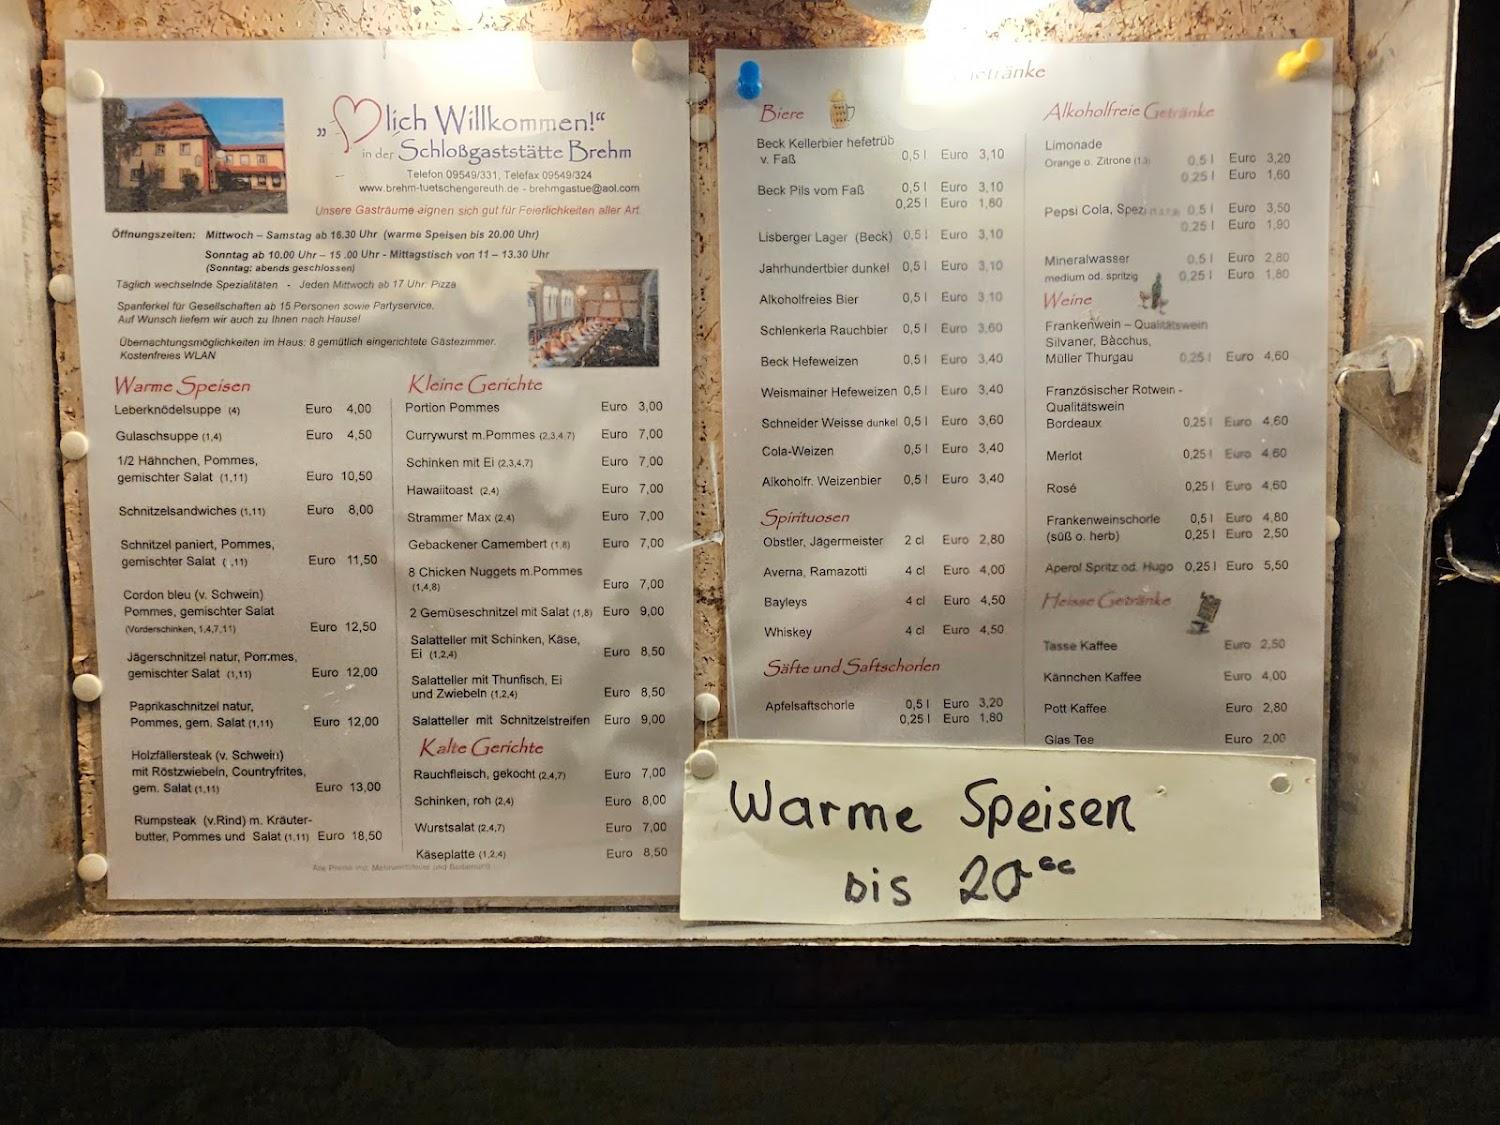 „ lich Willkommen!“
in der Schloßgaststätte Brehm
Telefon 09549/331, Telefax 09549/324
www.brehm-tuetschengereuth.de - brehmgastue@aol.com
Unsere Gasträume eignen sich gut für Feierlichkeiten aller Art
Öffnungszeiten: Mittwoch – Samstag ab 16.30 Uhr (warme Speisen bis 20.00 Uhr)
Sonntag ab 10.00 Uhr – 15.00 Uhr - Mittagstisch von 11 – 13.30 Uhr
(Sonntag: abends geschlossen)
Täglich wechselnde Spezialitäten - Jeden Mittwoch ab 17 Uhr: Pizza
Spanferkel für Gesellschaften ab 15 Personen sowie Partyservice.
Auf Wunsch liefern wir auch zu Ihnen nach Hause!
Übernachtungsmöglichkeiten im Haus: 8 gemütlich eingerichtete Gästezimmer.
Kostenfreies WLAN
Warme Speisen
Leberknödelsuppe (4) Euro 4,00
Gulaschsuppe (1,4) Euro 4,50
1/2 Hähnchen, Pommes,
gemischter Salat (1,11) Euro 10,50
Schnitzelsandwiches (1,11) Euro 8,00
Schnitzel paniert, Pommes,
gemischter Salat ( ,11) Euro 11,50
Cordon bleu (v. Schwein)
Pommes, gemischter Salat
(Vorderschinken, 1,4,7,11) Euro 12,50
Jägerschnitzel natur, Pommes,
gemischter Salat (1,11) Euro 12,00
Paprikaschnitzel natur,
Pommes, gem. Salat (1,11) Euro 12,00
Holzfällersteak (v. Schwein)
mit Röstzwiebeln, Countryfrites,
gem. Salat (1,11) Euro 13,00
Rumpsteak (v.Rind) m. Kräuter-
butter, Pommes und Salat (1,11) Euro 18,50
Kleine Gerichte
Portion Pommes Euro 3,00
Currywurst m.Pommes (2,3,4,7) Euro 7,00
Schinken mit Ei (2,3,4,7) Euro 7,00
Hawaiitoast (2,4) Euro 7,00
Strammer Max (2,4) Euro 7,00
Gebackener Camembert (1,8) Euro 7,00
8 Chicken Nuggets m.Pommes
(1,4,8) Euro 7,00
2 Gemüseschnitzel mit Salat (1,8) Euro 9,00
Salatteller mit Schinken, Käse,
Ei (1,2,4) Euro 8,50
Salatteller mit Thunfisch, Ei
und Zwiebeln (1,2,4) Euro 8,50
Salatteller mit Schnitzelstreifen Euro 9,00
Kalte Gerichte
Rauchfleisch, gekocht (2,4,7) Euro 7,00
Schinken, roh (2,4) Euro 8,00
Wurstsalat (2,4,7) Euro 7,00
Käseplatte (1,2,4) Euro 8,50
Alle Preise inkl. Mehrwertsteuer und Bedienung
Getränke
Biere
Beck Kellerbier hefetrüb
v. Faß 0,5 l Euro 3,10
Beck Pils vom Faß 0,5 l Euro 3,10
0,25 l Euro 1,80
Lisberger Lager (Beck) 0,5 l Euro 3,10
Jahrhundertbier dunkel 0,5 l Euro 3,10
Alkoholfreies Bier 0,5 l Euro 3,10
Schlenkerla Rauchbier 0,5 l Euro 3,60
Beck Hefeweizen 0,5 l Euro 3,40
Weismainer Hefeweizen 0,5 l Euro 3,40
Schneider Weisse dunkel 0,5 l Euro 3,60
Cola-Weizen 0,5 l Euro 3,40
Alkoholfr. Weizenbier 0,5 l Euro 3,40
Spirituosen
Obstler, Jägermeister 2 cl Euro 2,80
Averna, Ramazotti 4 cl Euro 4,00
Bayleys 4 cl Euro 4,50
Whiskey 4 cl Euro 4,50
Säfte und Saftschorlen
Apfelsaftschorle 0,5 l Euro 3,20
0,25 l Euro 1,80
Alkoholfreie Getränke
Limonade
Orange o. Zitrone (1,3) 0,5 l Euro 3,20
0,25 l Euro 1,60
Pepsi Cola, Spezi 0,5 l Euro 3,50
0,25 l Euro 1,90
Mineralwasser 0,5 l Euro 2,80
medium od. spritzig 0,25 l Euro 1,80
Weine
Frankenwein – Qualitätswein
Silvaner, Bàcchus,
Müller Thurgau 0,25 l Euro 4,60
Französischer Rotwein -
Qualitätswein
Bordeaux 0,25 l Euro 4,60
Merlot 0,25 l Euro 4,60
Rosé 0,25 l Euro 4,60
Frankenweinschorle 0,5 l Euro 4,80
(süß o. herb) 0,25 l Euro 2,50
Aperol Spritz od. Hugo 0,25 l Euro 5,50
Heisse Getränke
Tasse Kaffee Euro 2,50
Kännchen Kaffee Euro 4,00
Pott Kaffee Euro 2,80
Glas Tee Euro 2,00
Warme Speisen
bis 20⁰⁰